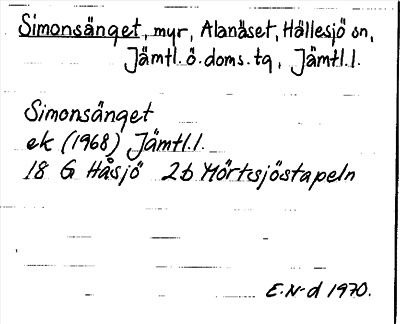 Simonsänget, myr, Alanäset, Hällesjö sn,
Jämtl. ö. doms. tg, Jämtl. l.
Simonsänget
ek (1968) Jämtl. l.
18 G Håsjö 2b Mörtsjöstapeln
E.N-d 1970.